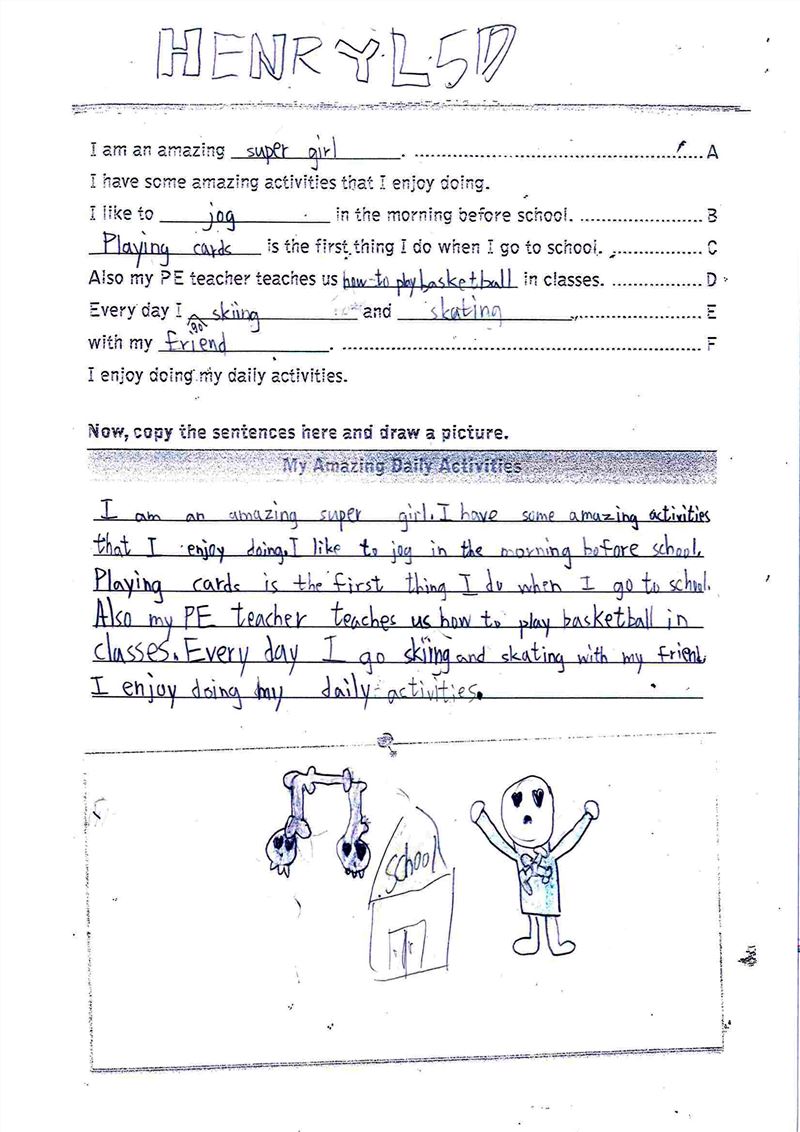 HENRY L 5D
I am an amazing super girl. A
I have some amazing activities that I enjoy doing.
I like to jog in the morning before school. B
Playing cards is the first thing I do when I go to school. C
Also my PE teacher teaches us how to play basketball in classes. D
Every day I go skiing and skating E
with my friend. F
I enjoy doing my daily activities.
Now, copy the sentences here and draw a picture.
My Amazing Daily Activities
I am an amazing super girl. I have some amazing activities
that I enjoy doing. I like to jog in the morning before school.
Playing cards is the first thing I do when I go to school.
Also my PE teacher teaches us how to play basketball in
classes. Every day I go skiing and skating with my friend.
I enjoy doing my daily activities.
school